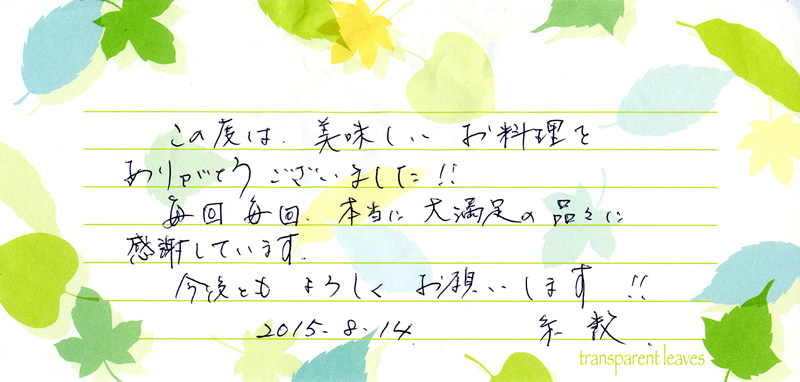 この度は、美味しい お料理を
ありがとう ございました!!
毎回毎回、本当に 大満足の 品々に
感謝しています。
今後とも よろしく お願いします !!
2015-8-14.
transparent leaves